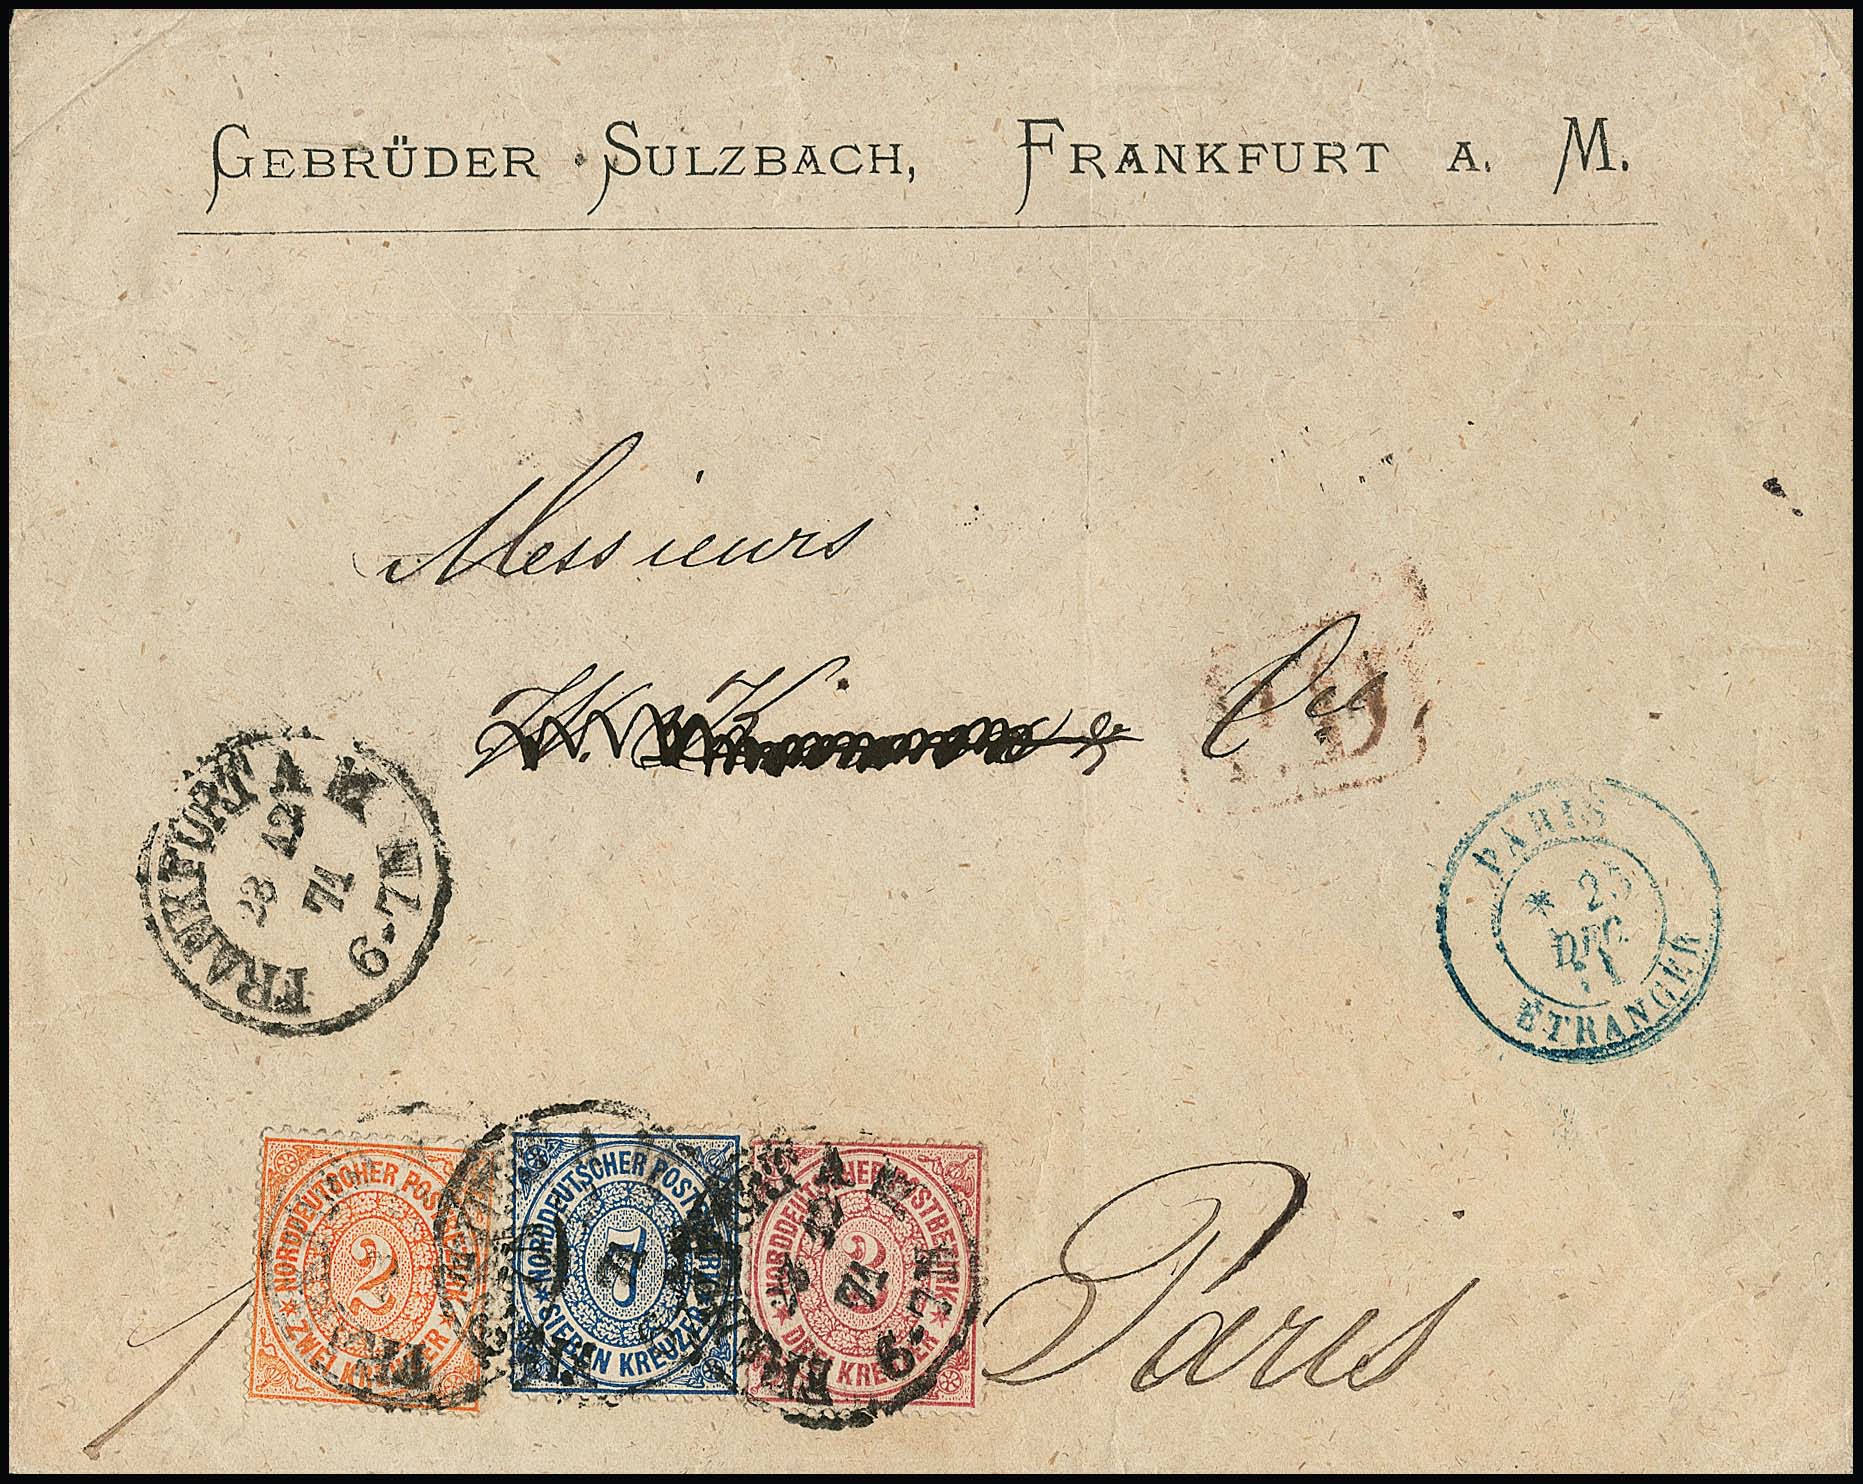 GEBRÜDER SULZBACH, FRANKFURT A. M.
Messieurs
& Cie
P.D.
FRANKFURT A M
23 12
71
6-7 N.
PARIS
* 25
DEC.
71
ÉTRANGER
NORDDEUTSCHER POSTBEZIRK
2
ZWEI KREUZER
NORDDEUTSCHER POSTBEZIRK
7
SIEBEN KREUZER
NORDDEUTSCHER POSTBEZIRK
3
DREI KREUZER
Paris